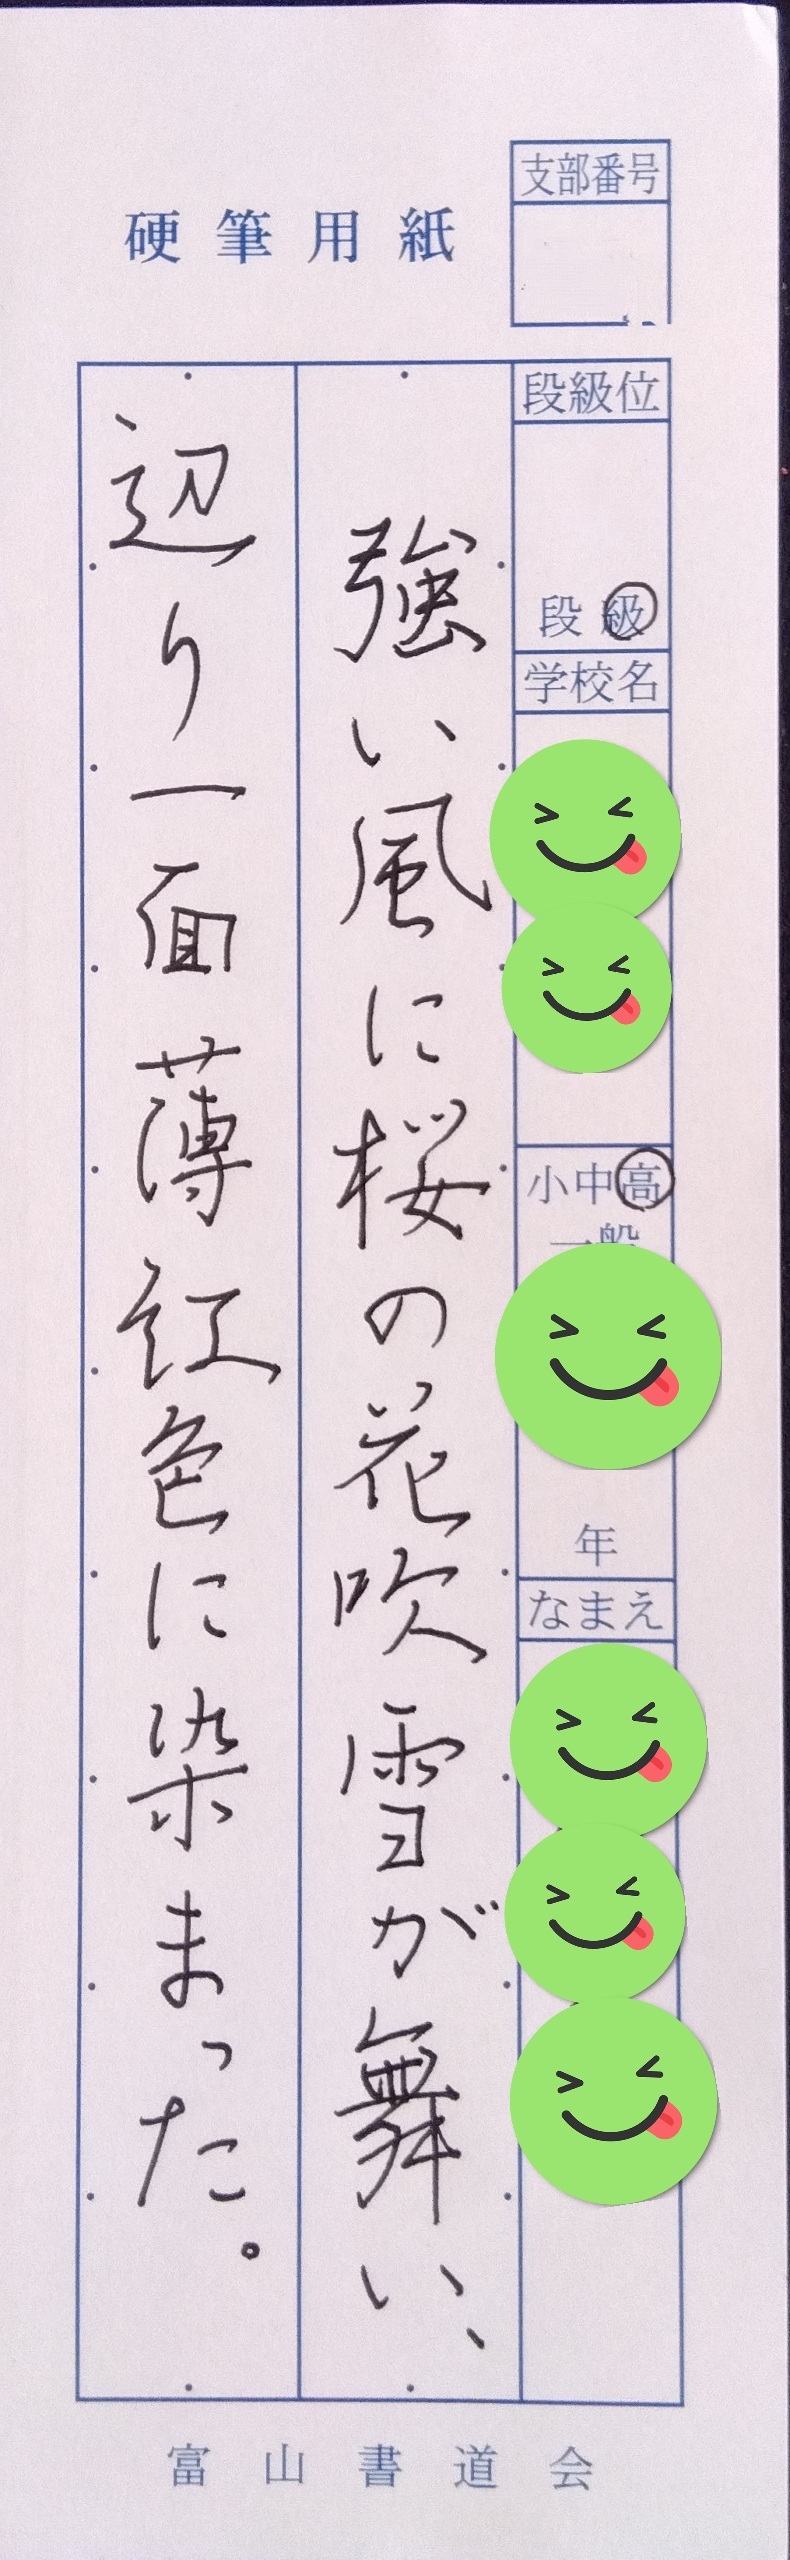 硬筆用紙
支部番号
段級位
段 級
学校名
小中高
一般
年
なまえ
強い風に桜の花吹雪が舞い、
辺り一面薄紅色に染まった。
富山書道会